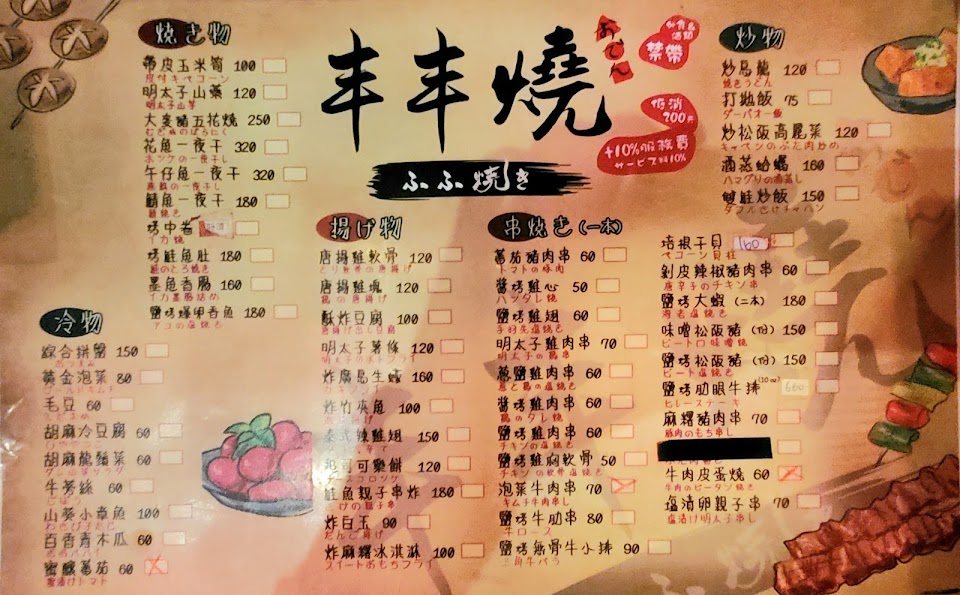 丰丰燒
おでん
ふふ焼き
外食&酒類
禁帶
低消
200元
+10%服務費
サービス料10%
焼き物
帶皮玉米筍 100
皮付きベコーン
明太子山藥 120
明太子山芋
大麥豬五花燒 250
むぎぬのばらにく
花魚一夜干 320
ホッケの一夜干し
午仔魚一夜干 320
鯖魚一夜干 180
鯖焼き
烤中卷
イカ焼
烤鮭魚肚 180
鮭のとろ焼き
墨魚香腸 160
イカ墨腸詰め
鹽烤爆卵香魚 180
アユの塩焼き
冷物
綜合拼盤 150
黃金泡菜 80
毛豆 60
胡麻冷豆腐 60
胡麻龍鬚菜 60
牛蒡絲 60
山葵小章魚 100
わさびたこ
百香青木瓜 60
蜜釀蕃茄 60
蜜漬けトマト
揚げ物
唐揚雞軟骨 120
とり軟骨の唐揚げ
唐揚雞塊 120
鶏の唐揚げ
酥炸豆腐 100
唐揚げ出し豆腐
明太子薯條 120
炸廣島生蠔 160
炸竹莢魚 100
泰式辣雞翅 150
起司可樂餅 120
鮭魚親子串炸 180
炸白玉 90
だんご揚げ
炸麻糬冰淇淋 100
スイートおもちフライ
串焼き(一本)
蕃茄豬肉串 60
トマトの豚肉
醬烤雞心 50
ハツタレ焼
鹽烤雞翅 60
手羽先塩焼き
明太子雞肉串 70
明太子の鶏串
蔥鹽雞肉串 60
葱と鶏の塩焼き
醬烤雞肉串 60
鶏のタレ焼
鹽烤雞肉串 60
チキンの塩焼き
鹽烤雞胸軟骨 50
チキンの軟骨塩焼き
泡菜牛肉串 70
キムチ牛肉串し
鹽烤牛肋串 80
牛ロース
鹽烤無骨牛小排 90
三角牛バラ
培根干貝 160
ベーコン貝柱
剝皮辣椒豬肉串 60
唐辛子のチキン串
鹽烤大蝦(二本) 180
海老塩焼き
味噌松阪豬(1份) 150
ピートロ味噌焼
鹽烤松阪豬(1份) 150
ピート塩焼き
鹽烤肋眼牛排(10oz) 660
ヒレーステーキ
麻糬豬肉串 70
豚肉のもち串し
牛肉皮蛋燒 60
牛肉のピータン焼き
塩漬卵親子串 70
塩漬け明太子串し
炒物
炒烏龍 120
焼きうどん
打拋飯 75
ガーパオー飯
炒松阪高麗菜 120
キャベンのぶた肉炒め
酒蒸蛤蠣 160
ハマグリの酒蒸し
雙鮭炒飯 150
ダブルさけチャハン